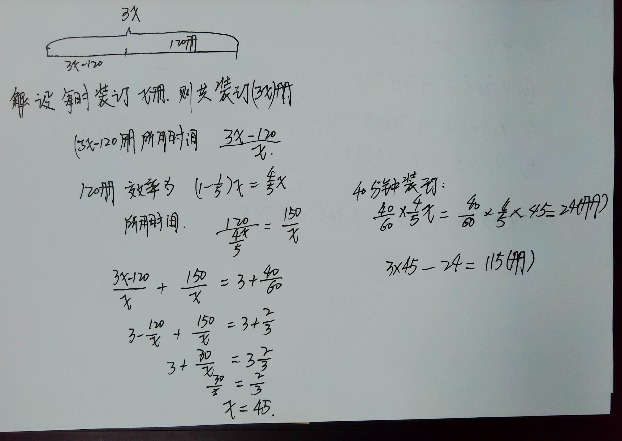 3x
120册
3x-120
解设每时装订x册.则共装订(3x)册
(3x-120)册所用时间 3x-120/x.
120册效率为 (1-1/5)x=4/5x
所用时间. 120/(4x/5)=150/x
3x-120/x+150/x=3+40/60
3-120/x+150/x=3+2/3
3+30/x=3 2/3
30/x=2/3
x=45.
40分钟装订:
40/60×4/5x=40/60×4/5×45=24(册)
3×45-24=115(册)